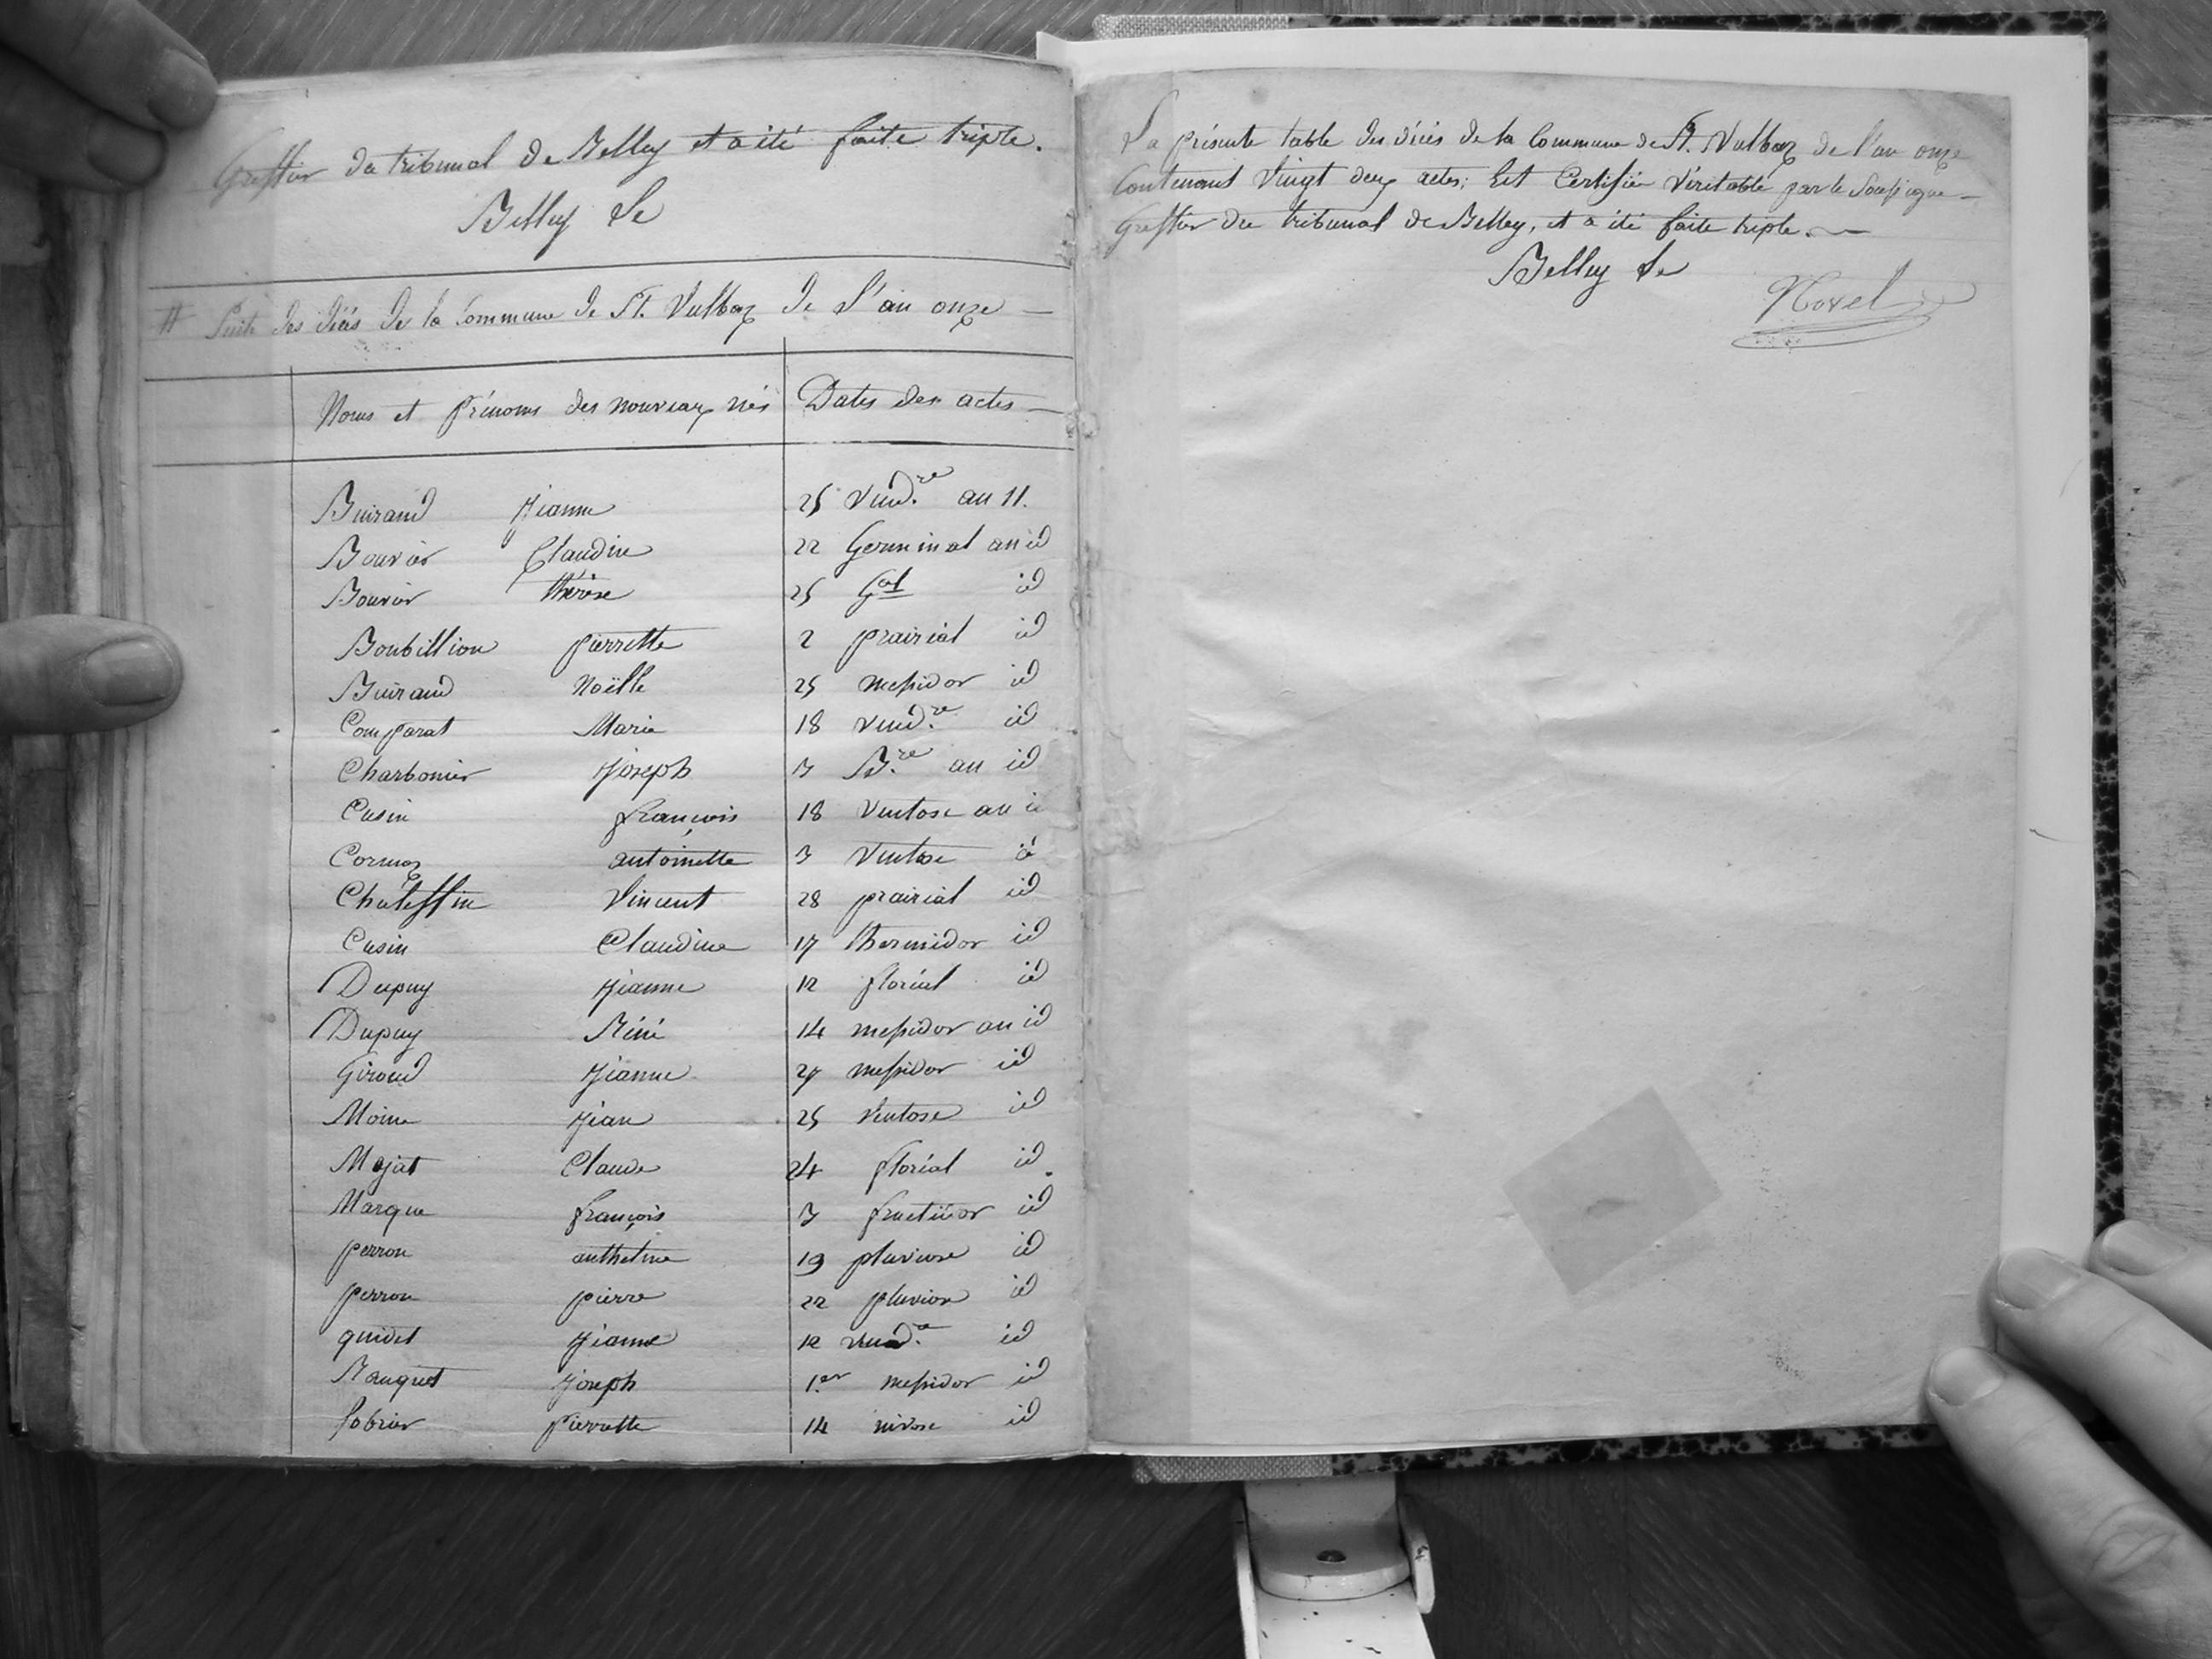 Greffier du tribunal de Belley et a été faite triple.
Belley le
# Suite des décès de la Commune de St. Vulbaz de l'an onze
Noms et prénoms des nouveaux nés Dates des actes
Buirand Jeanne 25 Vend.re an 11.
Bouvier Claudine 22 Germinal an id
Bouvier thérèse 25 Gal id
Boubillion pierrette 2 prairial id
Buirand Noëlle 25 messidor id
Comparat Marie 18 vend.re id
Charbonier Joseph 3 B.re an id
Cusin françois 18 Ventose an id
Cormoz antoinette 3 Ventose id
Vincent 28 prairial id
Cusin Claudine 17 thermidor id
Dupuy Jeanne 12 floréal id
Dupuy Réné 14 messidor an id
Giroud Jeanne 27 messidor id
Moine Jean 25 Ventose id
Mojat Claude 24 floréal id
Marque françois 3 fructidor id
perron anthelme 19 pluviose id
perron pierre 22 pluviose id
quidet Jeanne 12 vend.re id
Ranquet Joseph 1.er messidor id
Sobrier Pierrette 14 nivose id
La présente table des décès de la Commune de St. Vulbaz de l'an onze
Contenant Vingt deux actes; Est Certifiée Véritable par le Soussigné
Greffier du tribunal de Belley, et a été faite triple.
Belley le